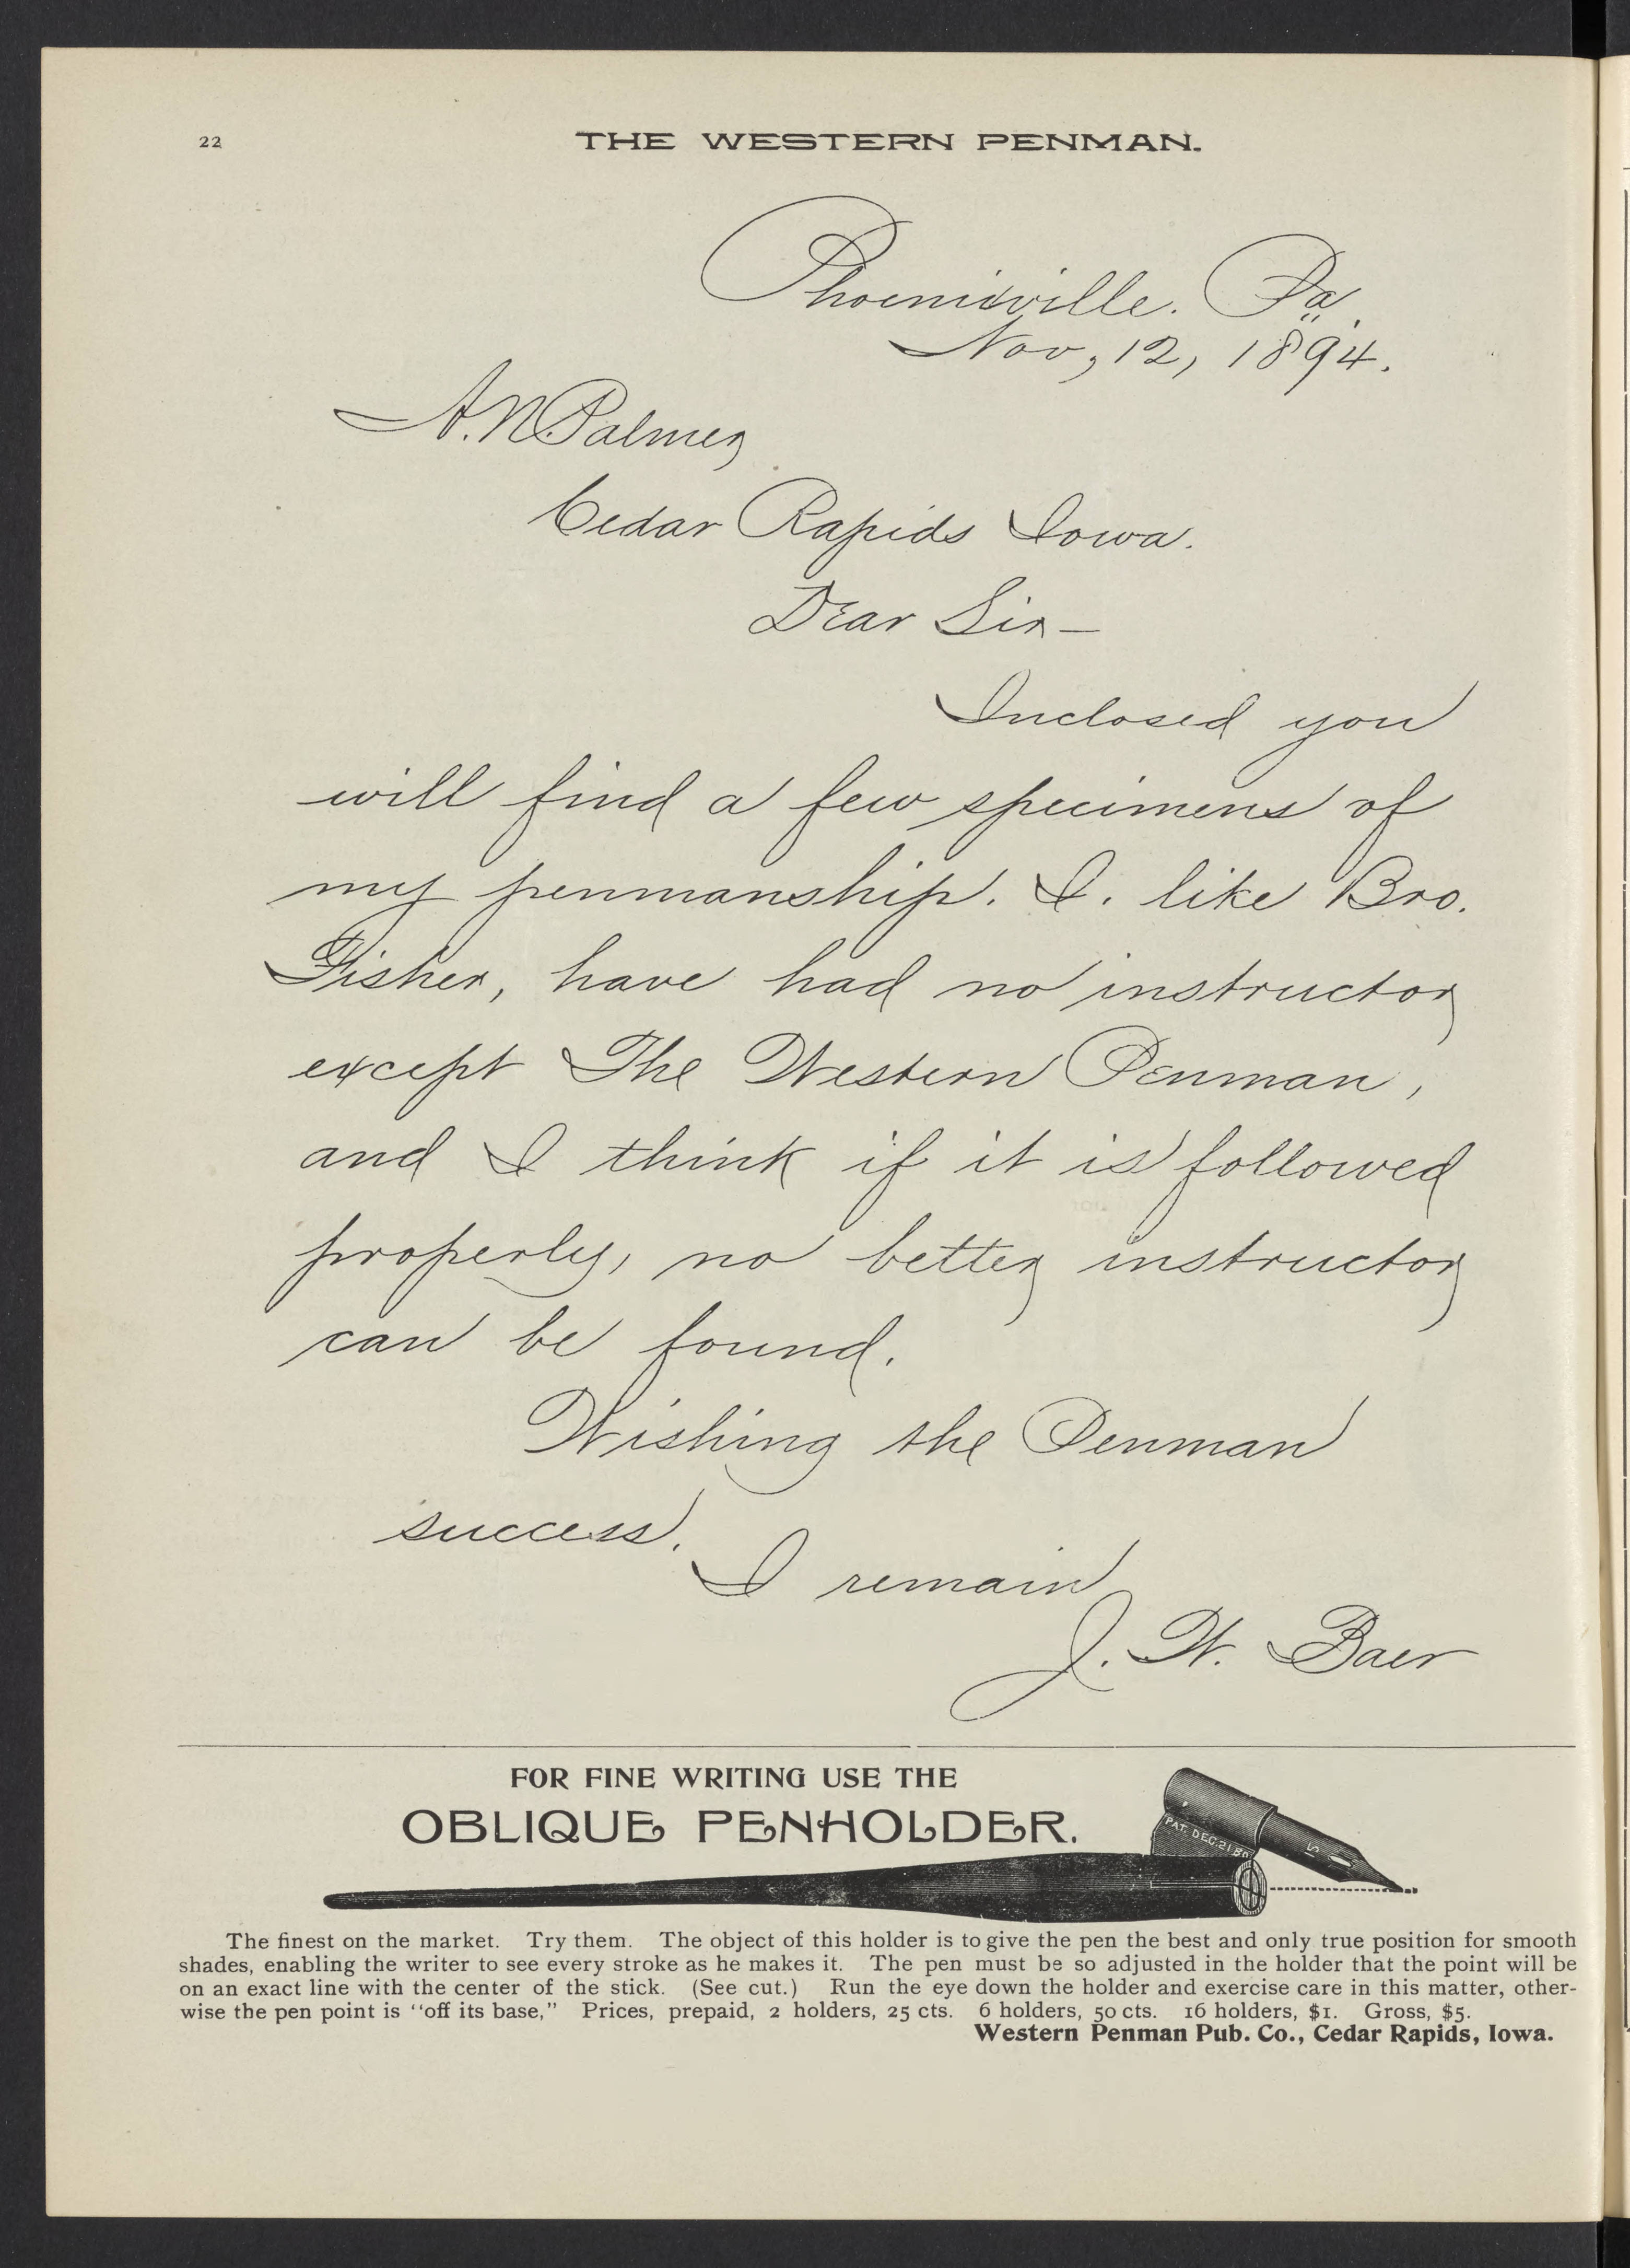 22
THE WESTERN PENMAN.
Phoenixville. Pa.
Nov, 12, 1894.
A. N. Palmer
Cedar Rapids Iowa.
Dear Sir—
Inclosed you
will find a few specimens of
my penmanship. I. like Bro.
Fisher, have had no instructor
except The Western Penman,
and I think if it is followed
properly, no better instructor
can be found.
Wishing the Penman
success.
I remain
J. W. Baer
FOR FINE WRITING USE THE
OBLIQUE PENHOLDER.
PAT. DEC. 21 80
The finest on the market. Try them. The object of this holder is to give the pen the best and only true position for smooth
shades, enabling the writer to see every stroke as he makes it. The pen must be so adjusted in the holder that the point will be
on an exact line with the center of the stick. (See cut.) Run the eye down the holder and exercise care in this matter, other-
wise the pen point is "off its base," Prices, prepaid, 2 holders, 25 cts. 6 holders, 50 cts. 16 holders, $1. Gross, $5.
Western Penman Pub. Co., Cedar Rapids, Iowa.